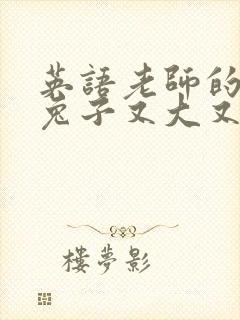 英語老師的
兔子又大又
樓夢影